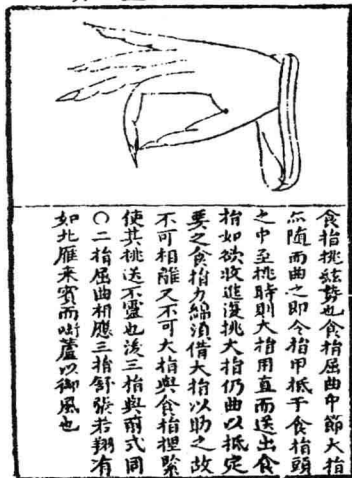 食指挑絃勢也食指屈曲中節大指
亦隨而曲之即令指甲抵于食指頭
之中至挑時則大指用直而送出食
指如欲收進復挑大指仍曲以抵定
要之食指力綿須借大指以助之故
不可相離又不可大指與食指捏緊
使其挑送不靈也後三指與前式同
○二指屈曲相應三指舒張若翔有
如北雁来賓而啣蘆以御風也